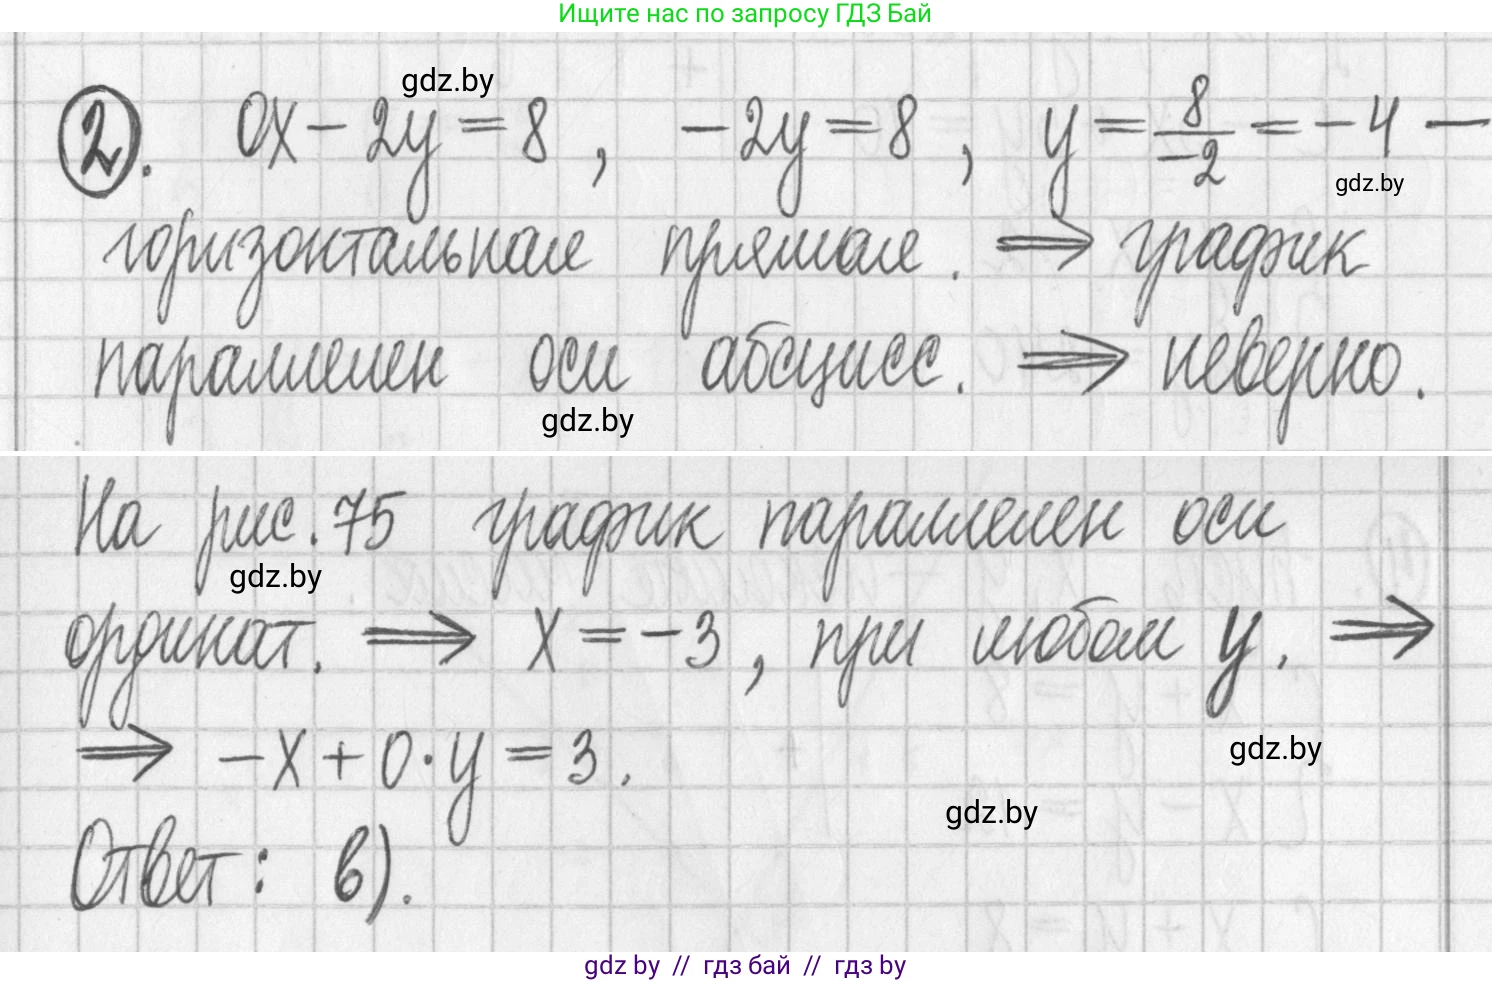 Ищите нас по запросу ГДЗ Бай
gdz.by
2. 0x - 2y = 8 , -2y = 8 , y = 8/-2 = -4 —
gdz.by
горизонтальная прямая. ⇒ график
параллелен оси абсцисс. ⇒ неверно.
gdz.by
На рис. 75 график параллелен оси
gdz.by
ординат. ⇒ x = -3 , при любом y. ⇒
⇒ -x + 0·y = 3.
gdz.by
gdz.by
Ответ: в).
gdz by // гдз бай // гдз by